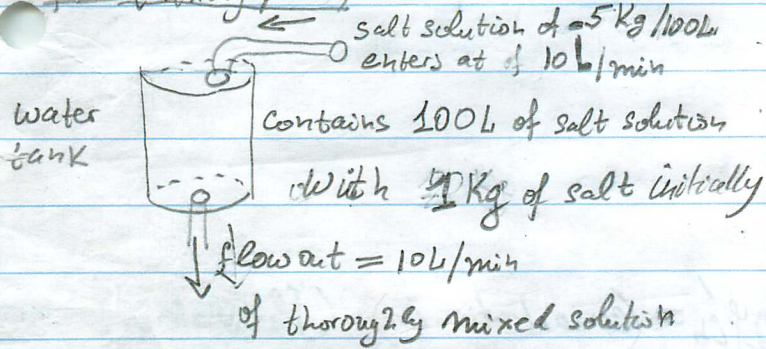 salt solution of 5 Kg/100L
enters at 10 L/min
water
tank
contains 100L of salt solution
with 1 Kg of salt initially
flow out = 10L/min
of thoroughly mixed solution